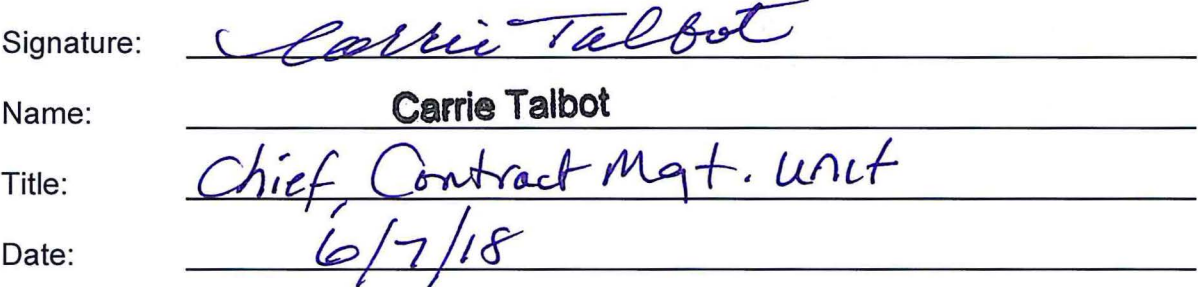 Signature: Carrie Talbot
Name: Carrie Talbot
Title: Chief, Contract Mgt. Unit
Date: 6/7/18